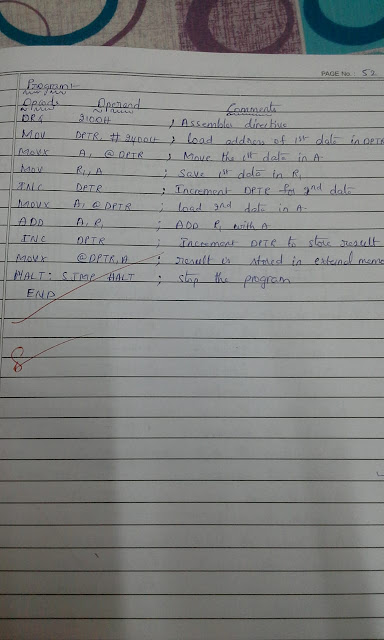 PAGE No: 52
Program:
Opcode Operand Comments
ORG 2100H ; Assembler directive
MOV DPTR, #2400H ; load address of 1st data in DPTR
MOVX A, @DPTR ; Move the 1st data in A
MOV R1, A ; save 1st data in R1
INC DPTR ; Increment DPTR for 2nd data
MOVX A, @DPTR ; load 2nd data in A
ADD A, R1 ; ADD R1 with A
INC DPTR ; Increment DPTR to store result
MOVX @DPTR, A ; result is stored in external memo
HALT: SJMP HALT ; stop the program
END
8